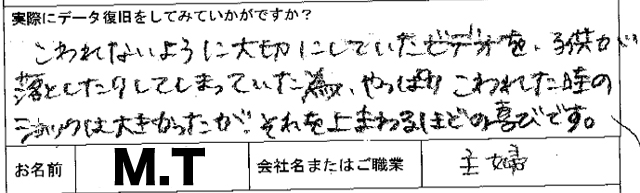 実際にデータ復旧をしてみていかがですか？
こわれないように大切にしていたビデオを、子供が
落としたりしてしまっていた為、やっぱりこわれた時の
ショックは大きかったが、それを上まわるほどの喜びです。
お名前 M.T 会社名またはご職業 主婦